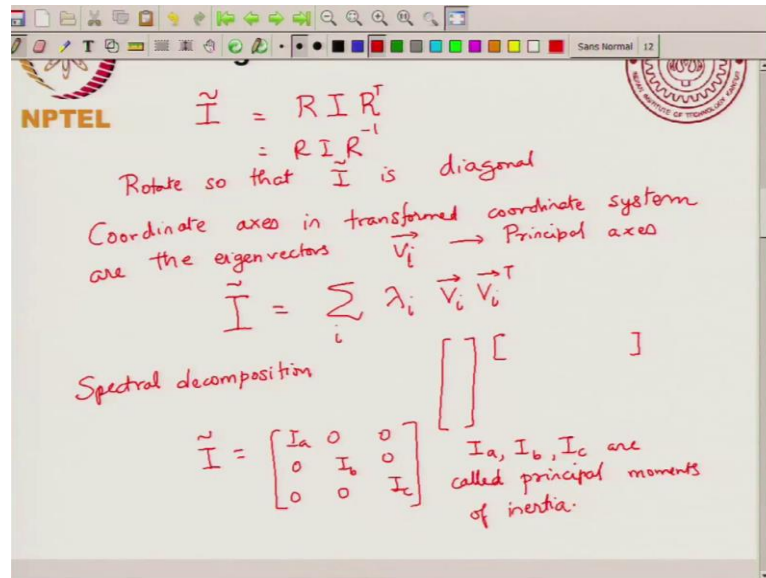 Sans Normal 12
NPTEL
Ĩ = R I Rᵀ
= R I R⁻¹
Rotate so that Ĩ is diagonal
Coordinate axes in transformed coordinate system
are the eigenvectors v⃗ᵢ → Principal axes
Ĩ = Σᵢ λᵢ v⃗ᵢ v⃗ᵢᵀ
Spectral decomposition [ ] [ ]
Ĩ = [Ia 0 0
0 Ib 0
0 0 Ic]
Ia, Ib, Ic are
called principal moments
of inertia.